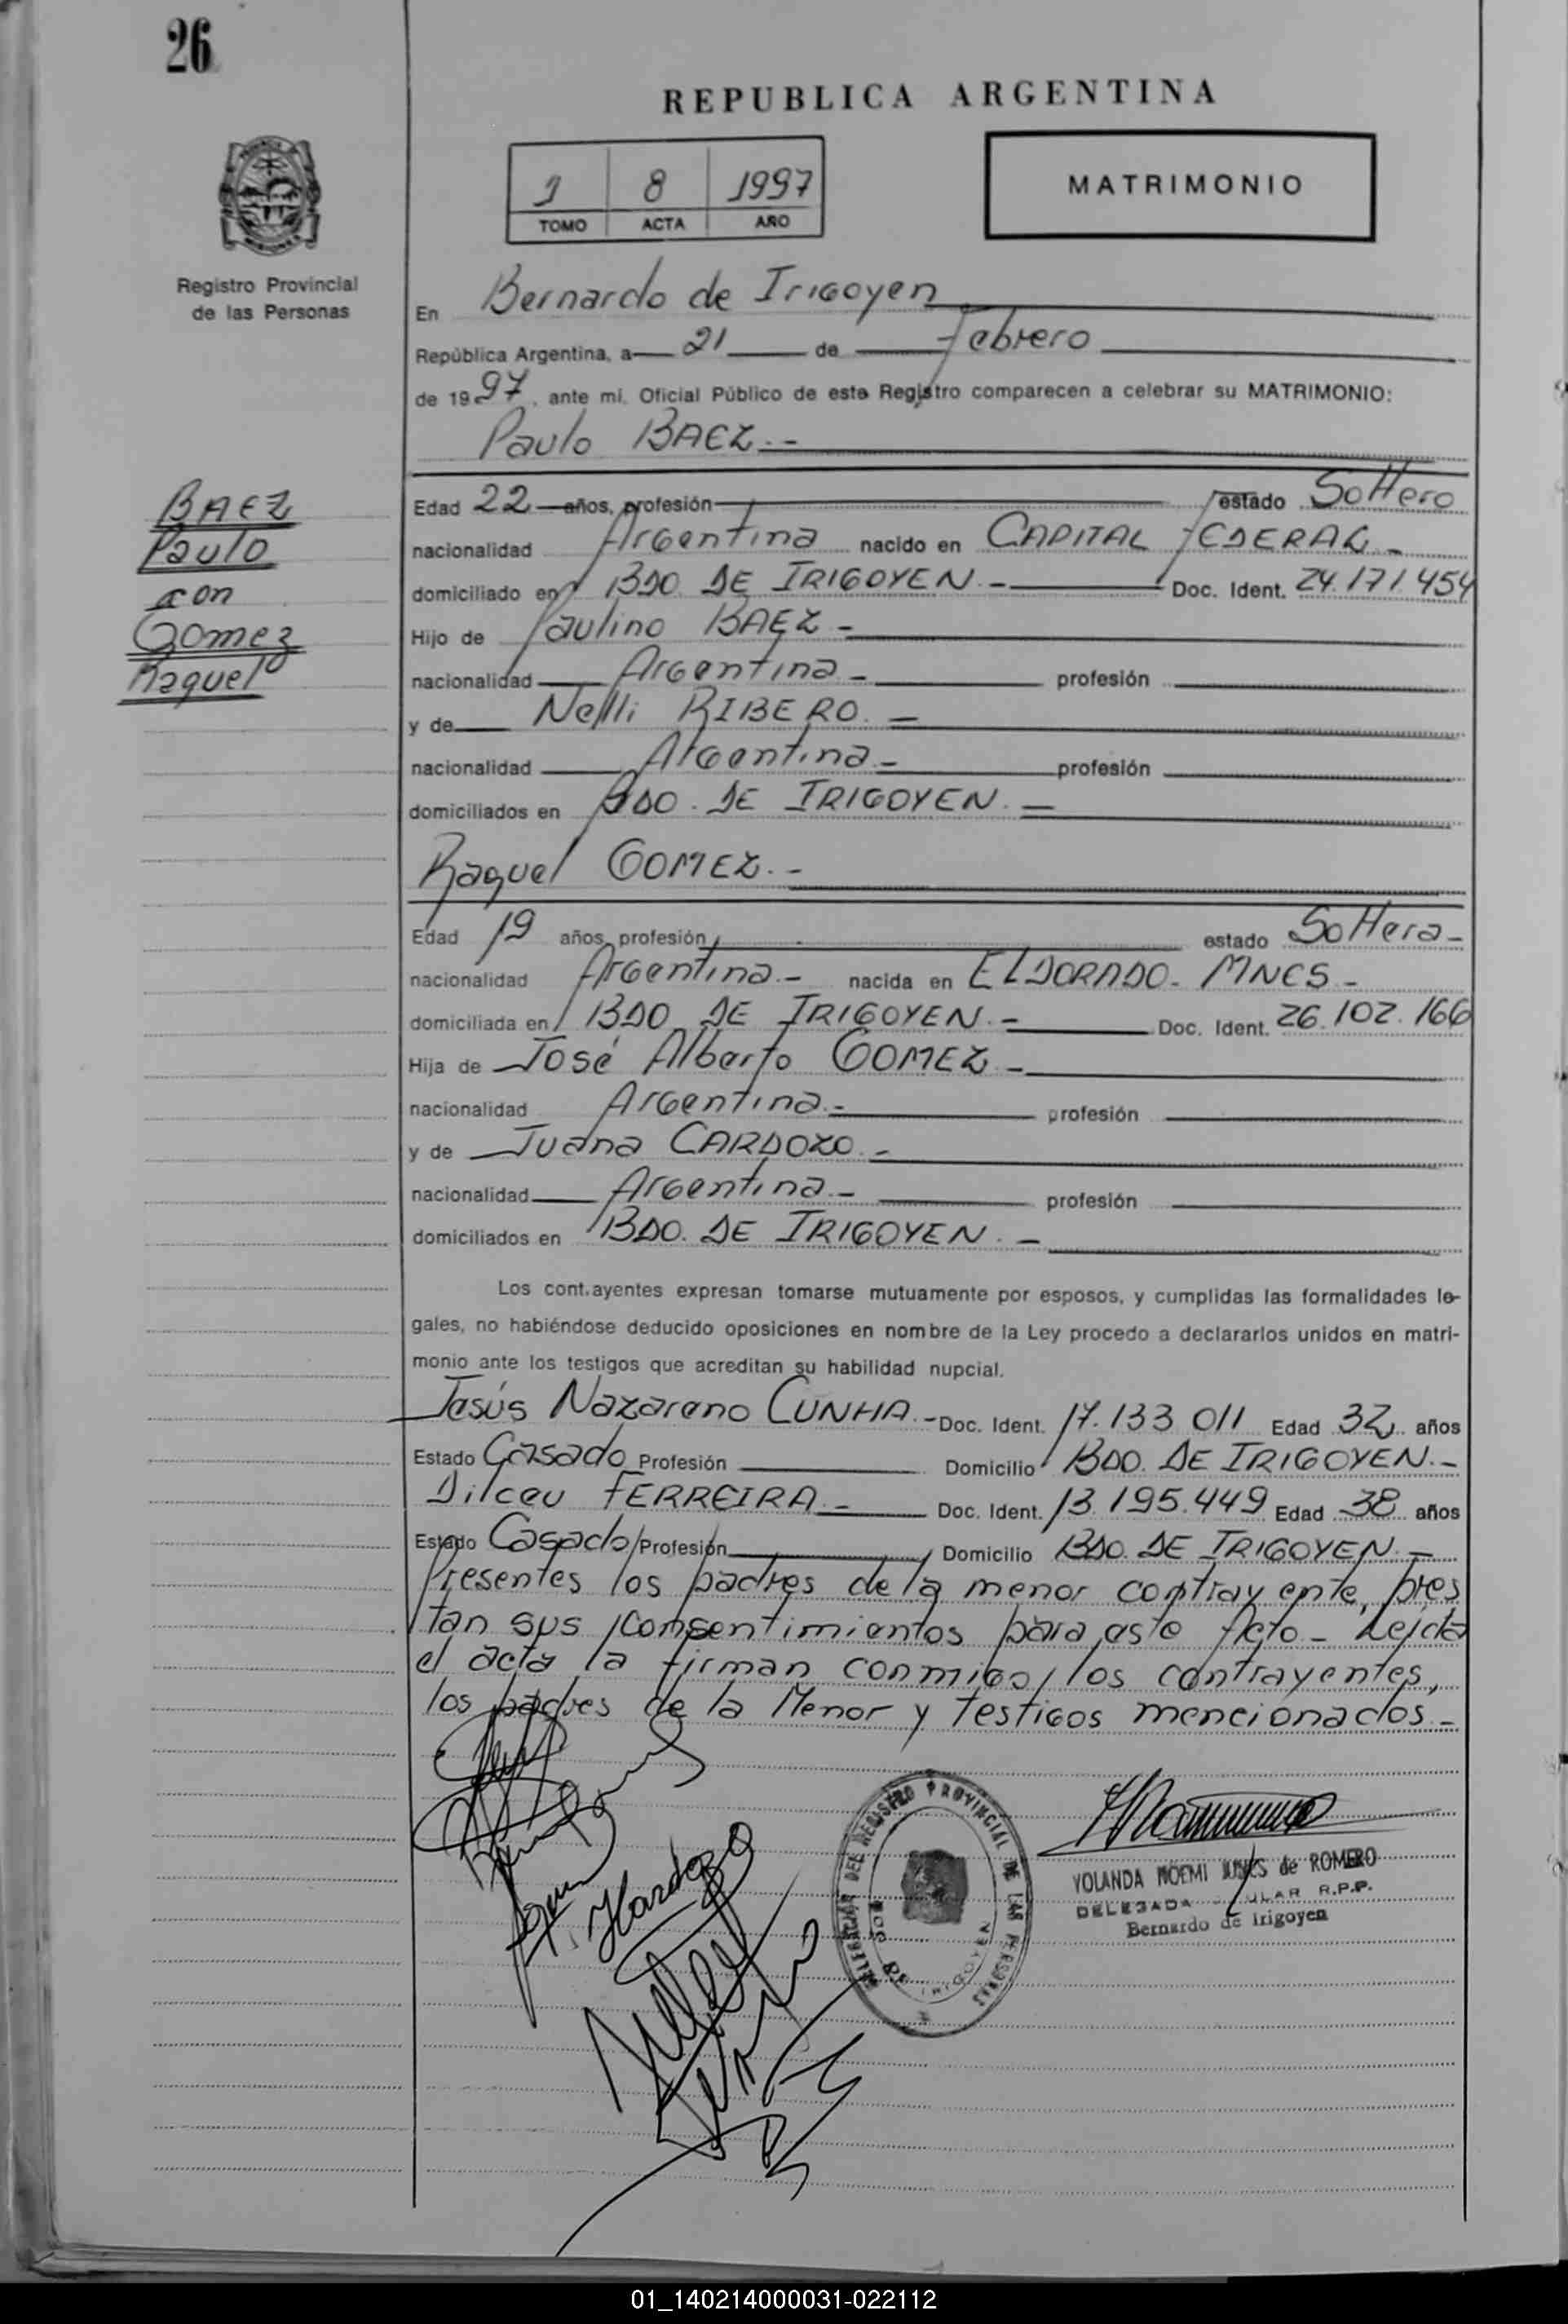 26
REPUBLICA ARGENTINA
1 8 1997
TOMO ACTA AÑO
MATRIMONIO
Registro Provincial
de las Personas
En Bernardo de Irigoyen
República Argentina, a 21 de Febrero
de 1997, ante mi, Oficial Público de este Registro comparecen a celebrar su MATRIMONIO:
Paulo BAEZ.-
BAEZ
Paulo
con
Gomez
Raquel
Edad 22 años, profesión estado Soltero
nacionalidad Argentina nacido en CAPITAL FEDERAL -
domiciliado en BDO. DE IRIGOYEN.- Doc. Ident. 24.171.454
Hijo de Paulino BAEZ -
nacionalidad Argentina - profesión
y de Nelli RIBERO. -
nacionalidad Argentina - profesión
domiciliados en BDO. DE IRIGOYEN. -
Raquel GOMEZ. -
Edad 19 años, profesión estado Soltera -
nacionalidad Argentina.- nacida en ELDORADO - MNES -
domiciliada en BDO DE IRIGOYEN.- Doc. Ident. 26.102.166
Hija de José Alberto GOMEZ -
nacionalidad Argentina.- profesión
y de Juana CARDOZO. -
nacionalidad Argentina - profesión
domiciliados en BDO. DE IRIGOYEN. -
Los cont.ayentes expresan tomarse mutuamente por esposos, y cumplidas las formalidades le-
gales, no habiéndose deducido oposiciones en nombre de la Ley procedo a declararlos unidos en matri-
monio ante los testigos que acreditan su habilidad nupcial.
Jesús Nazareno CUNHA.- Doc. Ident. 17.133.011 Edad 32 años
Estado Casado Profesión Domicilio BDO. DE IRIGOYEN.-
Dilceu FERREIRA.- Doc. Ident. 13.195.449 Edad 38 años
Estado Casado Profesión Domicilio BDO. DE IRIGOYEN.-
Presentes los padres de la menor contrayente, pres
tan sus consentimientos para este Acto - Leída
el acta la firman conmigo, los contrayentes,
los padres de la Menor y testigos mencionados.-
DELEGACION DEL REGISTRO PROVINCIAL DE LAS PERSONAS
BDO. DE IRIGOYEN
YOLANDA NOEMI de ROMERO
DELEGADA R.P.P.
Bernardo de Irigoyen
01_140214000031-022112